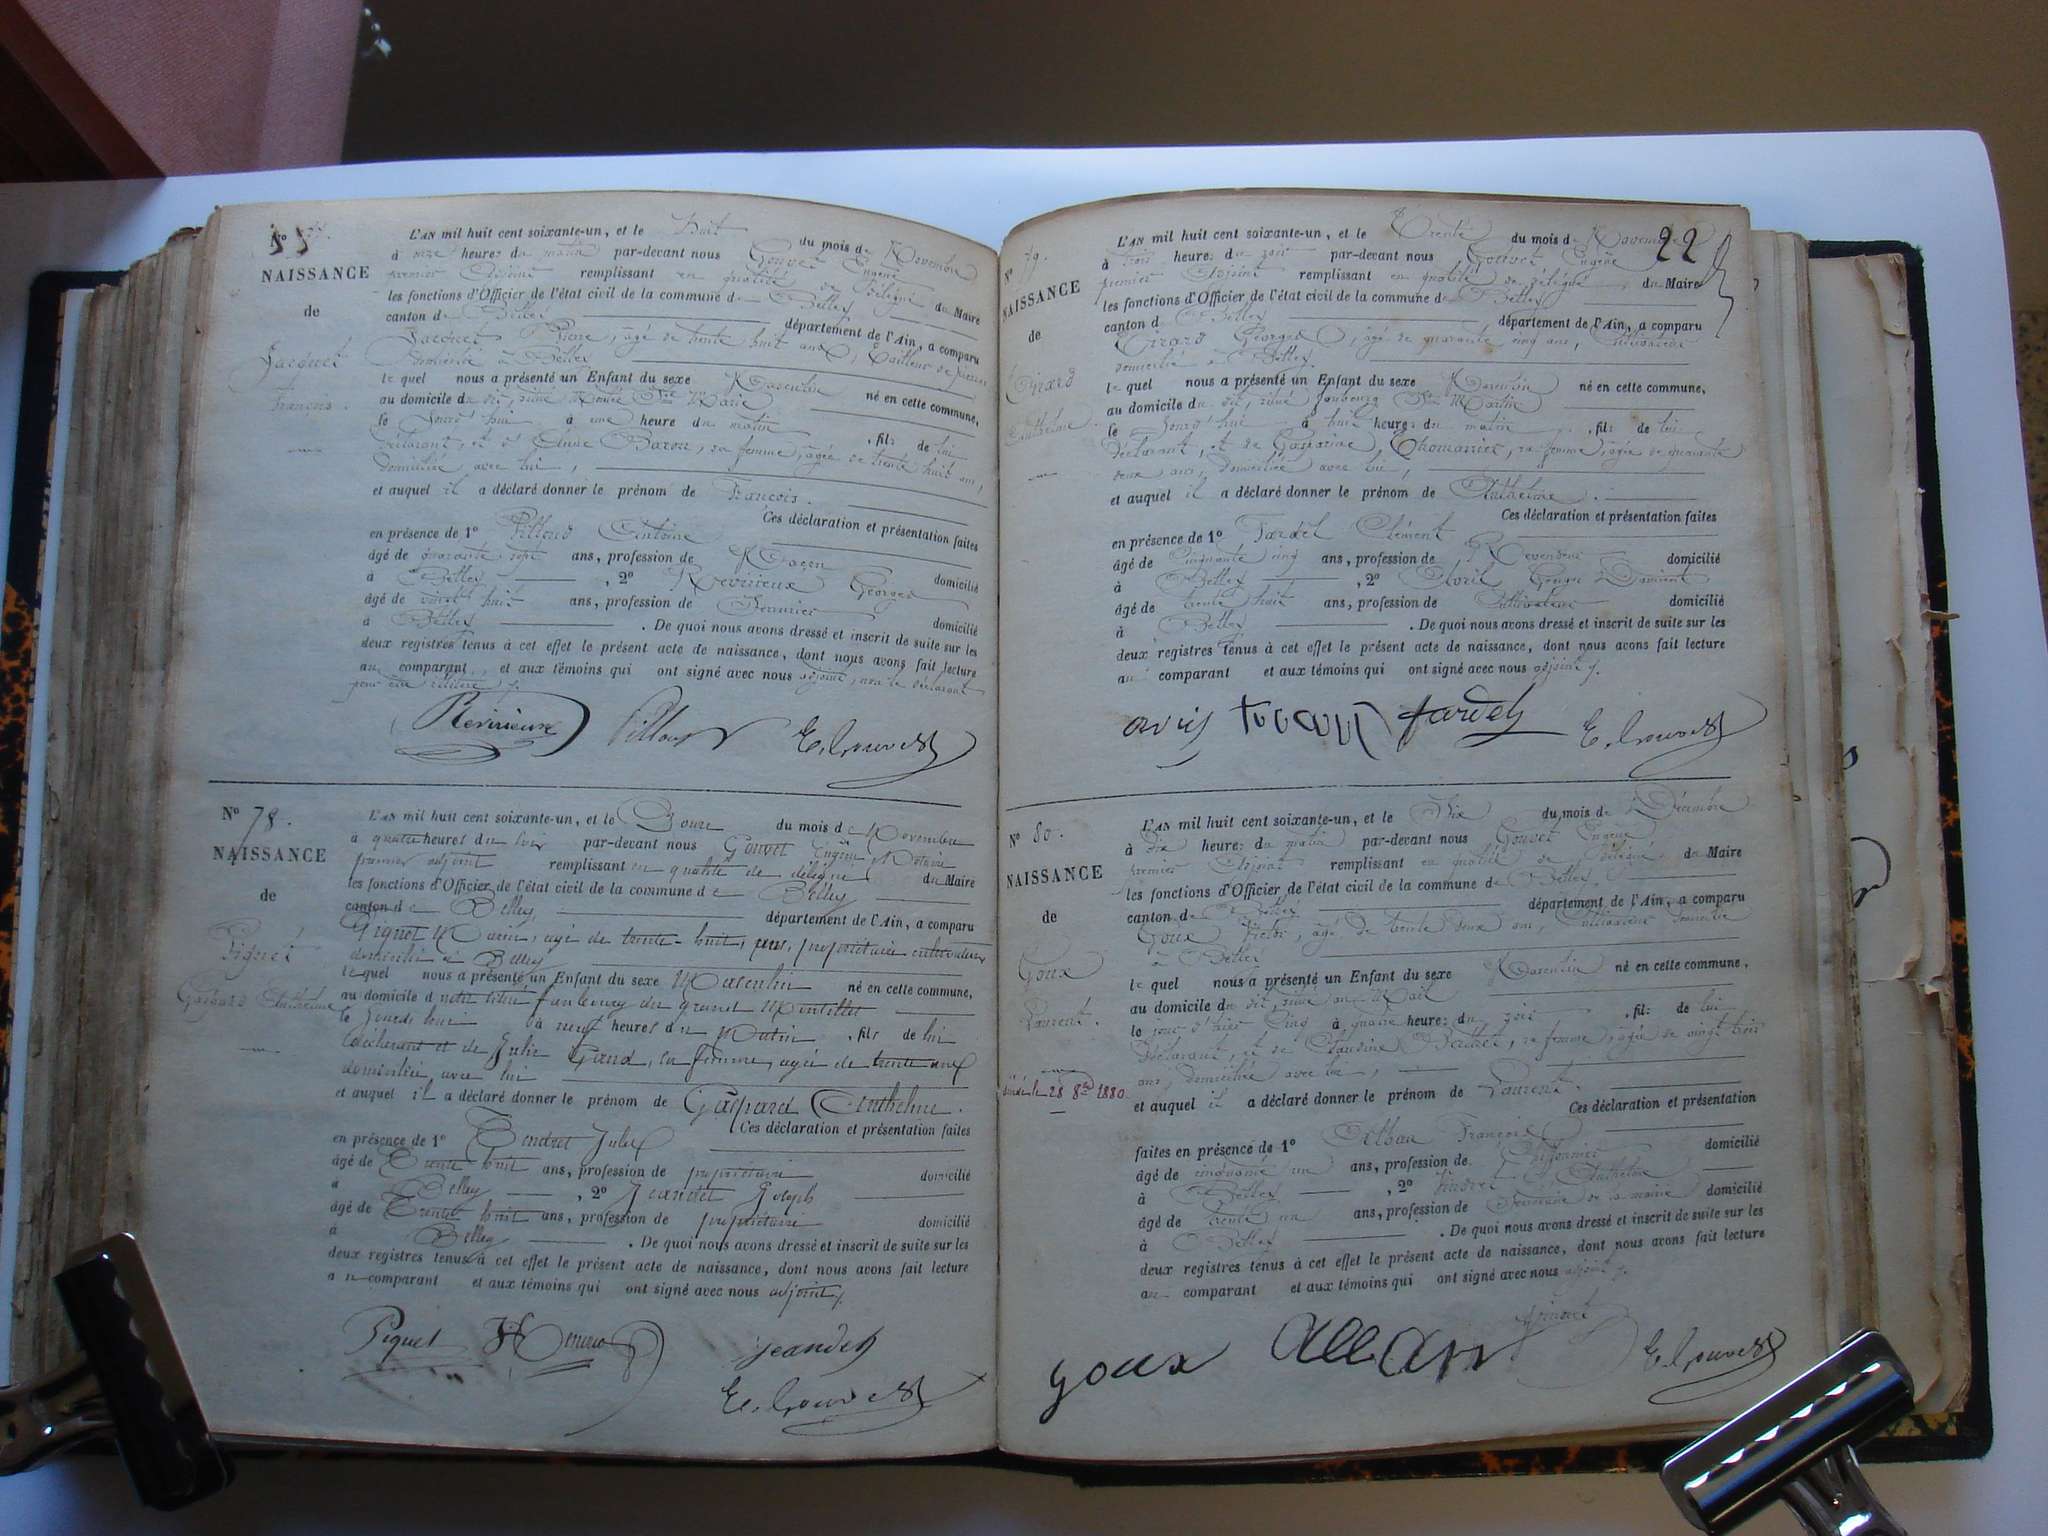 NAISSANCE
de
Jacquet
François.
L'AN mil huit cent soixante-un, et le huit du mois de Novembre
à onze heures du matin par-devant nous Gouvet Eugène
premier Adjoint remplissant en qualité de délégué du Maire
les fonctions d'Officier de l'état civil de la commune de Belley
canton de Belley département de l'Ain, a comparu
Jacquet Pierre, âgé de trente huit ans, tailleur de pierres
domicilié à Belley
lequel nous a présenté un Enfant du sexe Masculin né en cette commune,
au domicile du dit, situé Ste Marie
le Jourd'hui à une heure du matin, fils de lui
déclarant, et d' Baron, sa femme, âgée de trente huit ans,
domiciliée avec lui,
et auquel il a déclaré donner le prénom de François.
Ces déclaration et présentation faites
en présence de 1º Pilloud Antoine
âgé de quarante sept ans, profession de Maçon domicilié
à Belley, 2º Revirieux Georges
âgé de vingt huit ans, profession de domicilié
à Belley. De quoi nous avons dressé et inscrit de suite sur les
deux registres tenus à cet effet le présent acte de naissance, dont nous avons fait lecture
au comparant, et aux témoins qui ont signé avec nous adjoint, non le déclarant
pour être illitéré
Revirieux Pilloud E. Gouvet
Nº 78.
NAISSANCE
de
Piguet
Gaspard Anthelme
L'AN mil huit cent soixante-un, et le Douze du mois de Novembre
à quatre heures du soir par-devant nous Gouvet Eugène Notaire
premier adjoint remplissant en qualité de délégué du Maire
les fonctions d'Officier de l'état civil de la commune de Belley
canton de Belley département de l'Ain, a comparu
Piguet Marin, agé de trente-huit, ans, propriétaire cultivateur
domicilié à Belley
lequel nous a présenté un Enfant du sexe Masculin né en cette commune,
au domicile d situé faubourg du grand
le Jourdehui à neuf heures du Matin, fils de lui
déclarant et de Julie Gand, sa femme, agée de trente ans
domiciliée avec lui
et auquel il a déclaré donner le prénom de Gaspard Anthelme.
Ces déclaration et présentation faites
en présence de 1º Tendret Jules
âgé de Trente huit ans, profession de propriétaire domicilié
à Belley, 2º Jeandet Joseph
âgé de Trente huit ans, profession de propriétaire domicilié
à Belley. De quoi nous avons dressé et inscrit de suite sur les
deux registres tenus à cet effet le présent acte de naissance, dont nous avons fait lecture
au comparant et aux témoins qui ont signé avec nous adjoint
Piguet jeandet
E. Gouvet
22
Nº 79.
NAISSANCE
de
Girard
Anthelme
L'AN mil huit cent soixante-un, et le Trente du mois de Novembre
à trois heures du soir par-devant nous Gouvet Eugène
premier Adjoint remplissant en qualité de délégué du Maire
les fonctions d'Officier de l'état civil de la commune de Belley
canton de Belley, département de l'Ain, a comparu
Girard Georges, âgé de quarante cinq ans, Cultivateur
domicilié à Belley
lequel nous a présenté un Enfant du sexe Masculin né en cette commune,
au domicile du dit, situé faubourg St Martin
le Jourd'hui à huit heures du matin, fils de lui
déclarant, et de Gasparine Thomasset, sa femme, âgée de quarante
deux ans, domiciliée avec lui,
et auquel il a déclaré donner le prénom de Anthelme.
Ces déclaration et présentation faites
en présence de 1º Fardel Clément
âgé de Cinquante cinq ans, profession de Revendeur domicilié
à Belley, 2º Avril
âgé de trente huit ans, profession de Cultivateur domicilié
à Belley. De quoi nous avons dressé et inscrit de suite sur les
deux registres tenus à cet effet le présent acte de naissance, dont nous avons fait lecture
au comparant et aux témoins qui ont signé avec nous adjoint
fardel E. Gouvet
Nº 80.
NAISSANCE
de
Goux
Laurent.
28 8bre 1880
L'AN mil huit cent soixante-un, et le Six du mois de Décembre
à dix heures du matin par-devant nous Gouvet Eugène
premier Adjoint remplissant en qualité de délégué du Maire
les fonctions d'Officier de l'état civil de la commune de Belley
canton de Belley département de l'Ain, a comparu
Goux Victor, âgé de trente deux ans, Cultivateur domicilié
à Belley
lequel nous a présenté un Enfant du sexe Masculin né en cette commune,
au domicile du dit, situé au Mail
le jour d'hier Cinq à quatre heures du soir, fils de lui
déclarant, et de Claudine, sa femme, âgée de vingt trois
ans, domiciliée avec lui,
et auquel il a déclaré donner le prénom de Laurent.
Ces déclaration et présentation
faites en présence de 1º Allban François
âgé de cinquante un ans, profession de domicilié
à Belley, 2º Anthelme
âgé de trente un ans, profession de Secrétaire de la mairie domicilié
à Belley. De quoi nous avons dressé et inscrit de suite sur les
deux registres tenus à cet effet le présent acte de naissance, dont nous avons fait lecture
au comparant et aux témoins qui ont signé avec nous adjoint
goux E. Gouvet